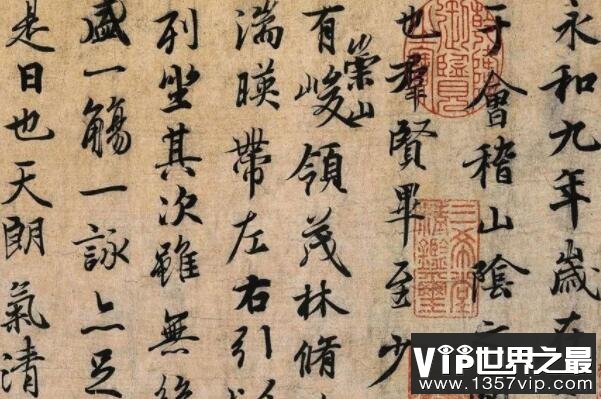 永和九年歲在
于會稽山陰
也羣賢畢至少
有崇山峻領茂林脩
湍暎帶左右引以
列坐其次雖無
盛一觴一詠亦足
是日也天朗氣清
三希堂精鑑璽
VIP世界之最
www.1357vip.com